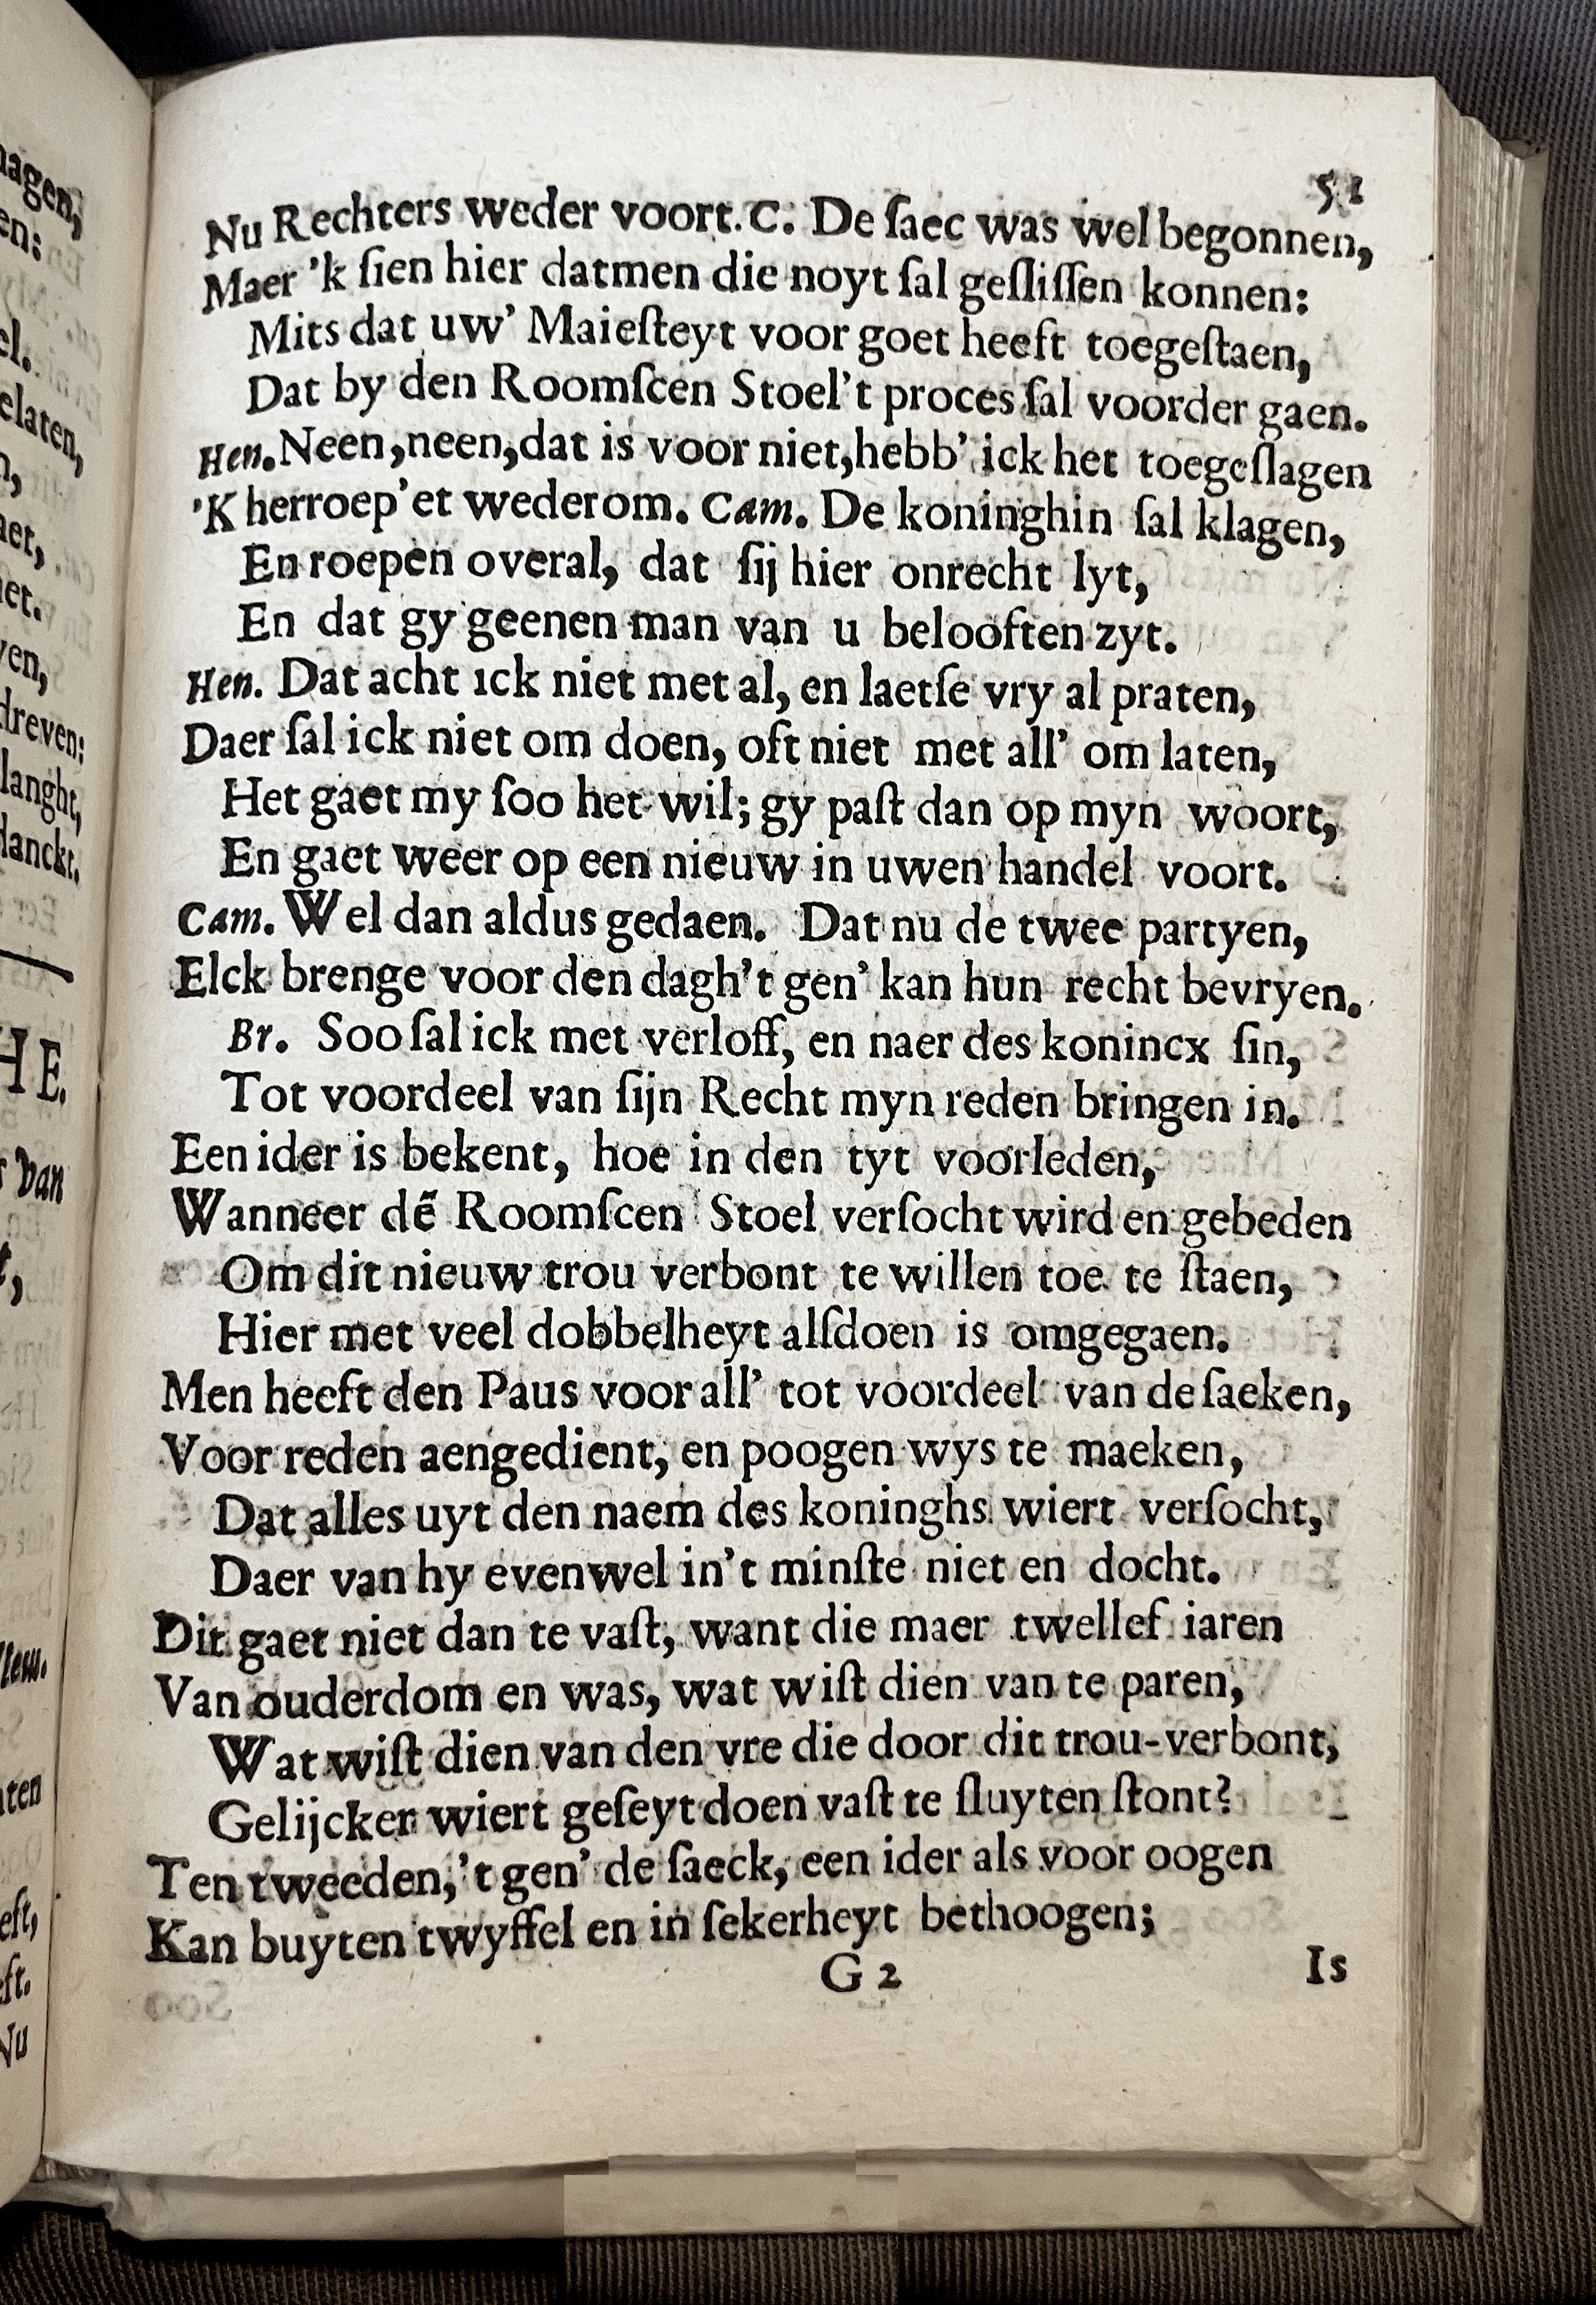 51
Nu Rechters weder voort. C. De ſaec was wel begonnen,
Maer 'k ſien hier datmen die noyt ſal geſliſſen konnen:
Mits dat uw' Maieſteyt voor goet heeft toegeſtaen,
Dat by den Roomſcen Stoel't proces ſal voorder gaen.
Hen. Neen, neen, dat is voor niet, hebb' ick het toegeſlagen
'K herroep'et wederom. Cam. De koninghin ſal klagen,
En roepen overal, dat ſij hier onrecht lyt,
En dat gy geenen man van u belooften zyt.
Hen. Dat acht ick niet met al, en laetſe vry al praten,
Daer ſal ick niet om doen, oft niet met all' om laten,
Het gaet my ſoo het wil; gy paſt dan op myn woort,
En gaet weer op een nieuw in uwen handel voort.
Cam. Wel dan aldus gedaen. Dat nu de twee partyen,
Elck brenge voor den dagh't gen' kan hun recht bevryen.
Br. Soo ſal ick met verloff, en naer des konincx ſin,
Tot voordeel van ſijn Recht myn reden bringen in.
Een ider is bekent, hoe in den tyt voorleden,
Wanneer dẽ Roomſcen Stoel verſocht wird en gebeden
Om dit nieuw trou verbont te willen toe te ſtaen,
Hier met veel dobbelheyt alſdoen is omgegaen.
Men heeft den Paus voor all' tot voordeel van de ſaeken,
Voor reden aengedient, en poogen wys te maeken,
Dat alles uyt den naem des koninghs wiert verſocht,
Daer van hy evenwel in't minſte niet en docht.
Dit gaet niet dan te vaſt, want die maer twellef iaren
Van ouderdom en was, wat wiſt dien van te paren,
Wat wiſt dien van den vre die door dit trou-verbont,
Gelijcker wiert geſeyt doen vaſt te ſluyten ſtont?
Ten tweeden, 't gen' de ſaeck, een ider als voor oogen
Kan buyten twyffel en in ſekerheyt bethoogen;
G 2
Is